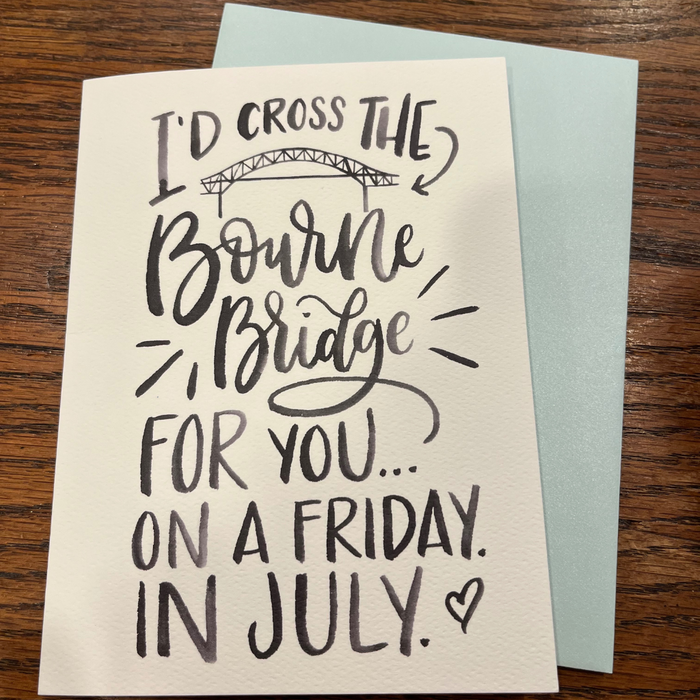 I'D CROSS THE
Bourne
Bridge
FOR YOU...
ON A FRIDAY.
IN JULY.